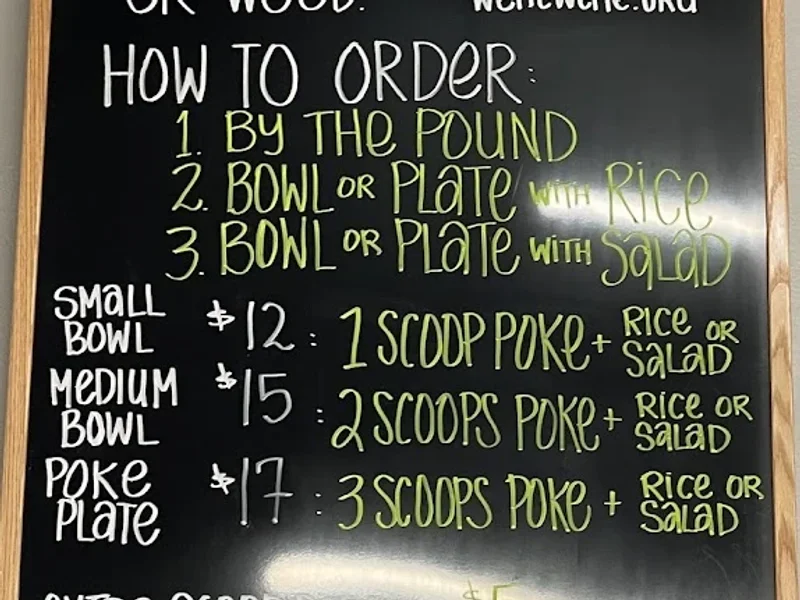 OR WOOD.
HOW TO ORDER:
1. BY THE POUND
2. BOWL OR PLATE WITH RICE
3. BOWL OR PLATE WITH SALAD
SMALL BOWL $12 : 1 SCOOP POKE + RICE OR SALAD
MEDIUM BOWL $15 : 2 SCOOPS POKE + RICE OR SALAD
POKE PLATE $17 : 3 SCOOPS POKE + RICE OR SALAD
$5